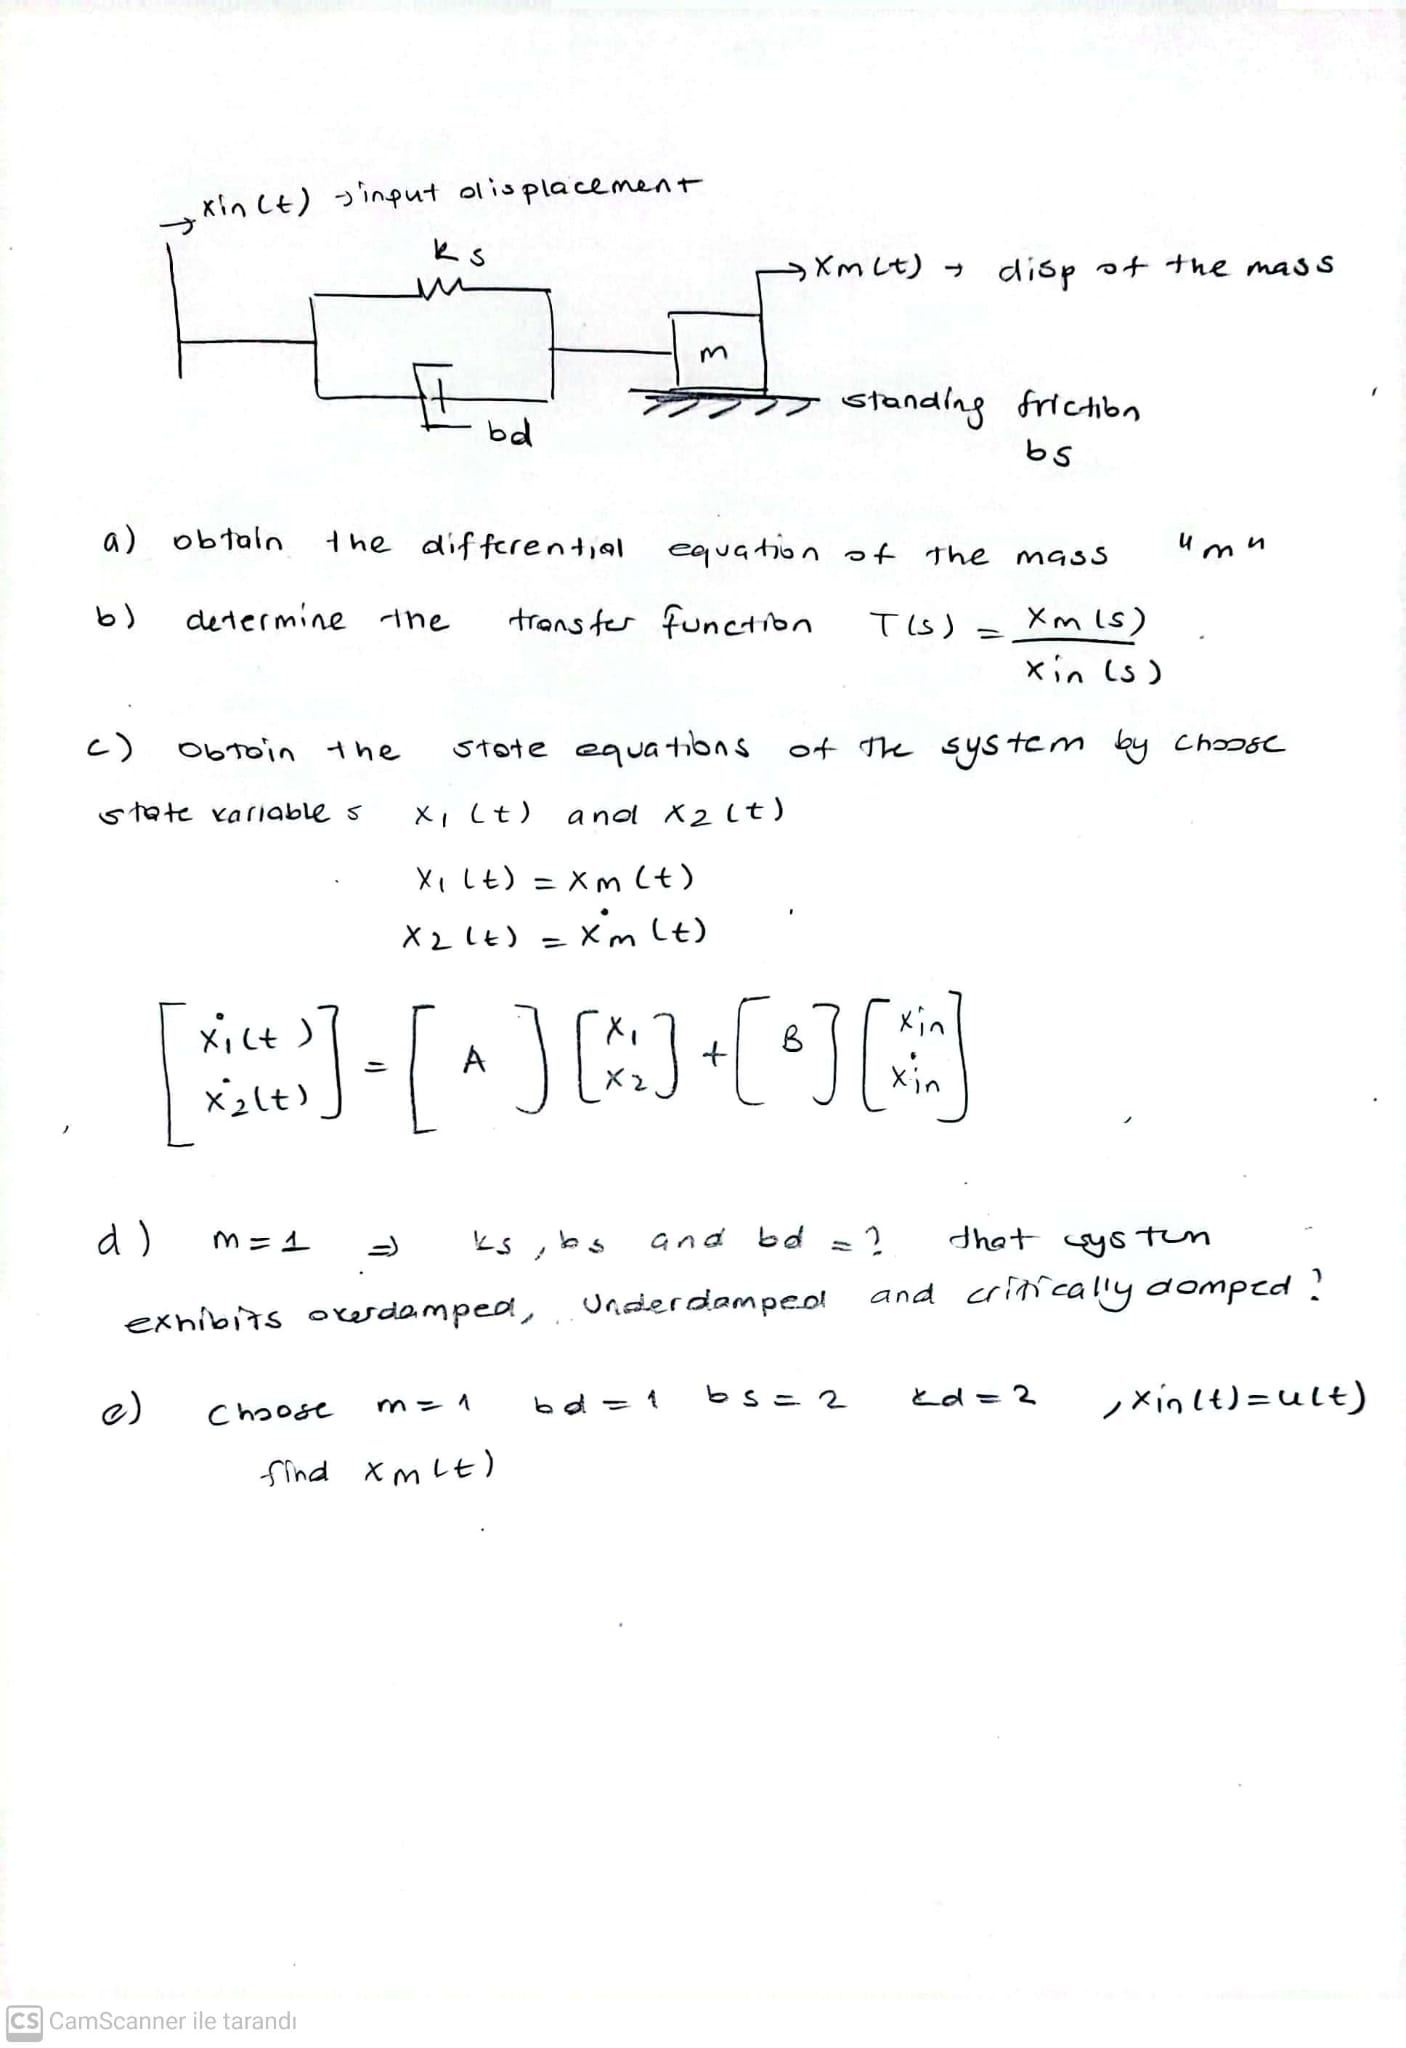 xin(t) → input displacement
ks
xm(t) → disp of the mass
m
standing friction
bd
bs
a) obtain the differential equation of the mass "m"
b) determine the transfer function T(s) = Xm(s)
xin(s)
c) Obtain the state equations of the system by choose
state variables x1(t) and x2(t)
x1(t) = xm(t)
x2(t) = ẋm(t)
[ẋ1(t)] = [A] [x1] + [B] [xin]
[ẋ2(t)] [x2] [ẋin]
d) m=1 ⇒ ks, bs and bd = ? that system
exhibits overdamped, Underdamped and critically domped?
e) Choose m=1 bd=1 bs=2 kd=2 , xin(t)=u(t)
find xm(t)
CS CamScanner ile tarandı